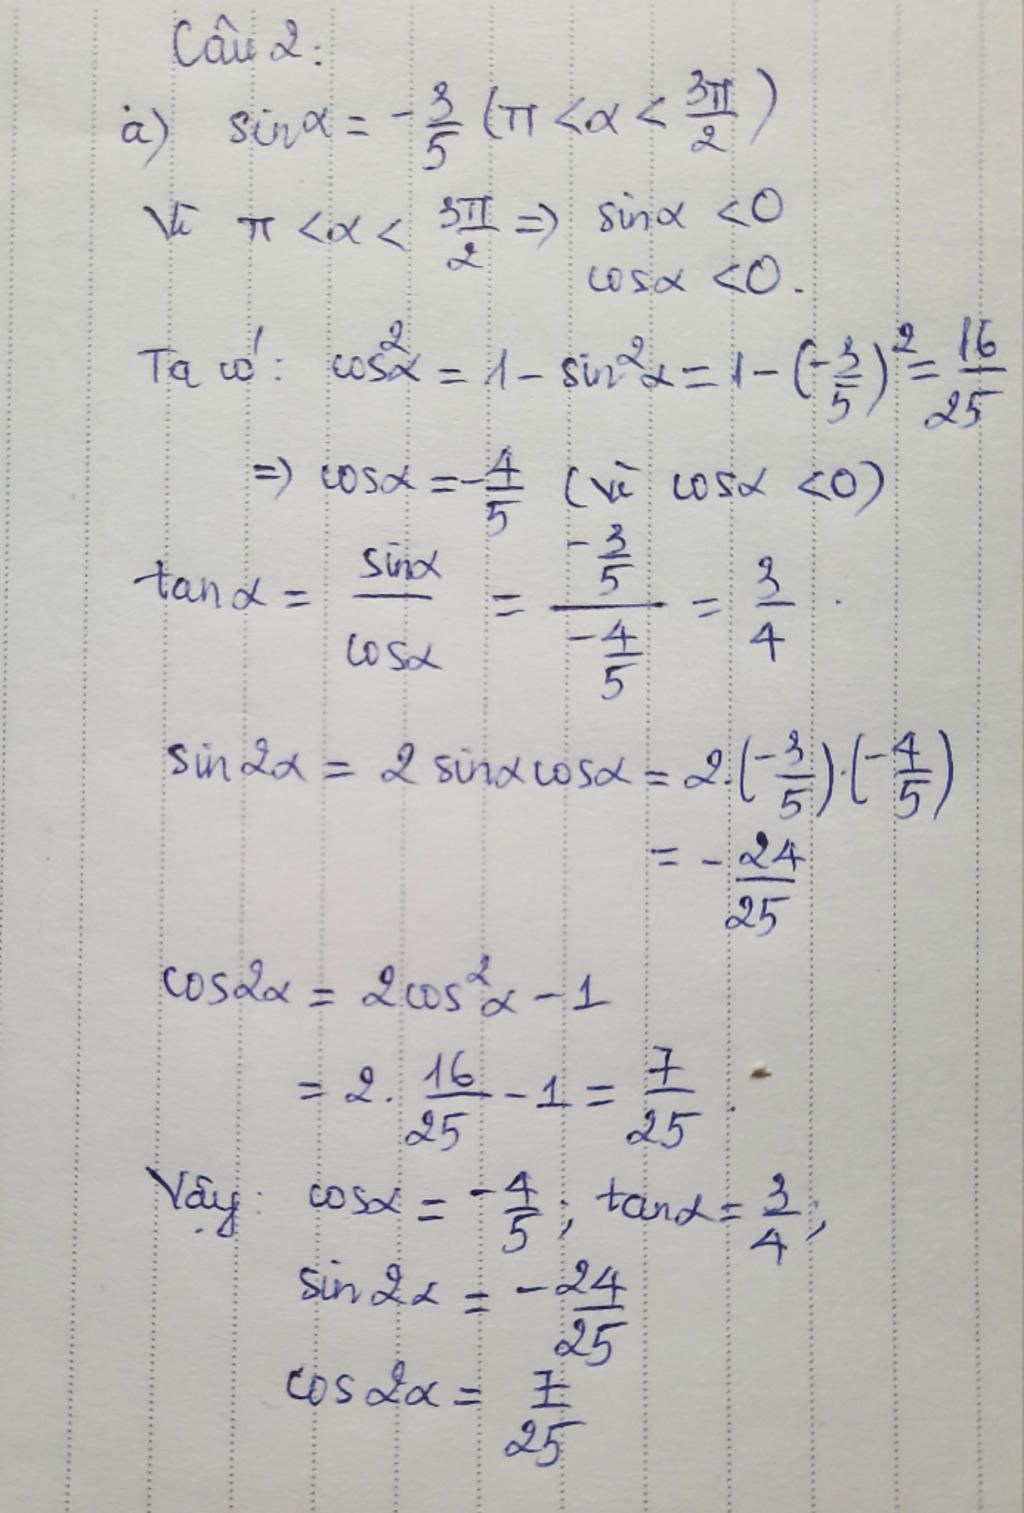 Câu 2:
a) sinα = -3/5 (π < α < 3π/2)
Vì π < α < 3π/2 => sinα < 0
cosα < 0.
Ta có: cos²α = 1 - sin²α = 1 - (-3/5)² = 16/25
=> cosα = -4/5 (vì cosα < 0)
tanα = sinα/cosα = (-3/5)/(-4/5) = 3/4.
sin2α = 2 sinα cosα = 2.(-3/5).(-4/5)
= -24/25
cos2α = 2cos²α - 1
= 2. 16/25 - 1 = 7/25.
Vậy: cosα = -4/5; tanα = 3/4;
sin2α = -24/25
cos2α = 7/25